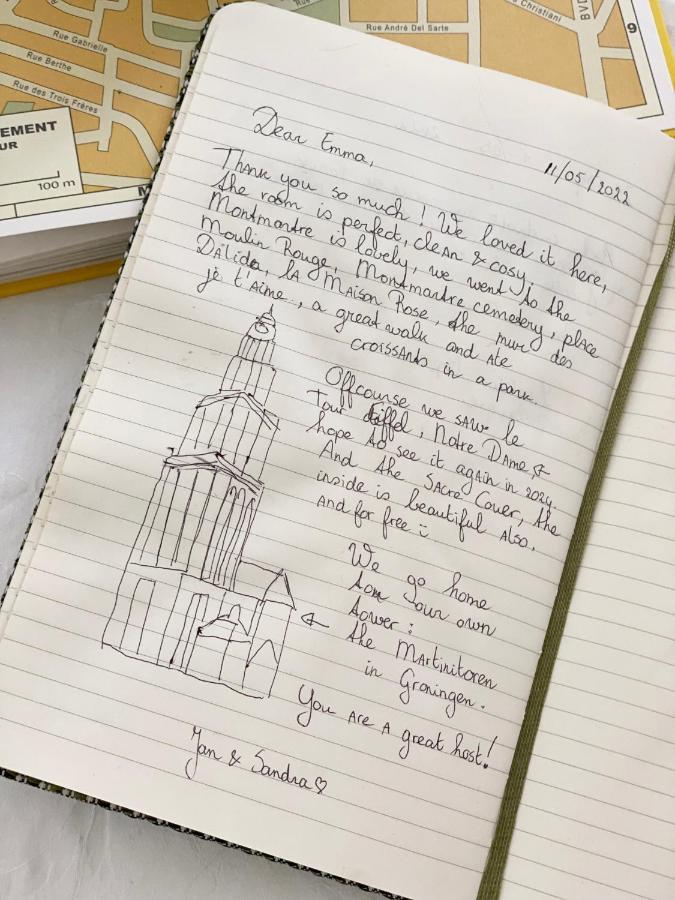 Rue Gabrielle
Rue Berthe
Rue des Trois Frères
EMENT
UR
100 m
M
Rue
Rue André Del Sarte
Christiani
BVD
9
Dear Emma,
11/05/2022
Thank you so much! We loved it here,
the room is perfect, clean & cosy.
Montmartre is lovely, we went to the
Moulin Rouge, Montmartre cemetery, place
Dalida, la Maison Rose, the mur des
je t'aime, a great walk and ate
croissants in a park.
Offcourse we saw le
Tour Eiffel, Notre Dame &
hope to see it again in 2024.
And the Sacré Couer, the
inside is beautiful also.
and for free :)
We go home
to our own
tower:
the Martinitoren
in Groningen.
You are a great host!
Jan & Sandra♡